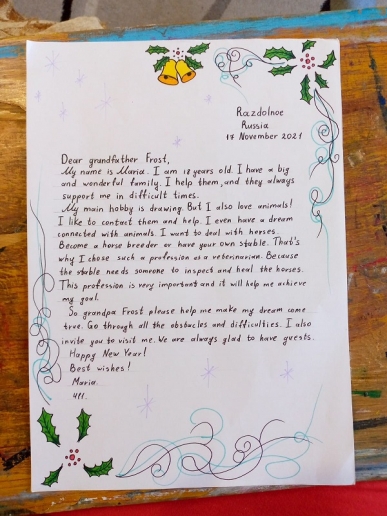 Razdolnoe
Russia
17 November 2021
Dear grandfather Frost,
My name is Maria. I am 18 years old. I have a big
and wonderful family. I help them, and they always
support me in difficult times.
My main hobby is drawing. But I also love animals!
I like to contact them and help. I even have a dream
connected with animals. I want to deal with horses.
Become a horse breeder or have your own stable. That's
why I chose such a profession as a veterinarian. Because
the stable needs someone to inspect and heal the horses.
This profession is very important and it will help me achieve
my goal.
So grandpa Frost please help me make my dream come
true. Go through all the obstacles and difficulties. I also
invite you to visit me. We are always glad to have guests.
Happy New Year!
Best wishes!
Maria.